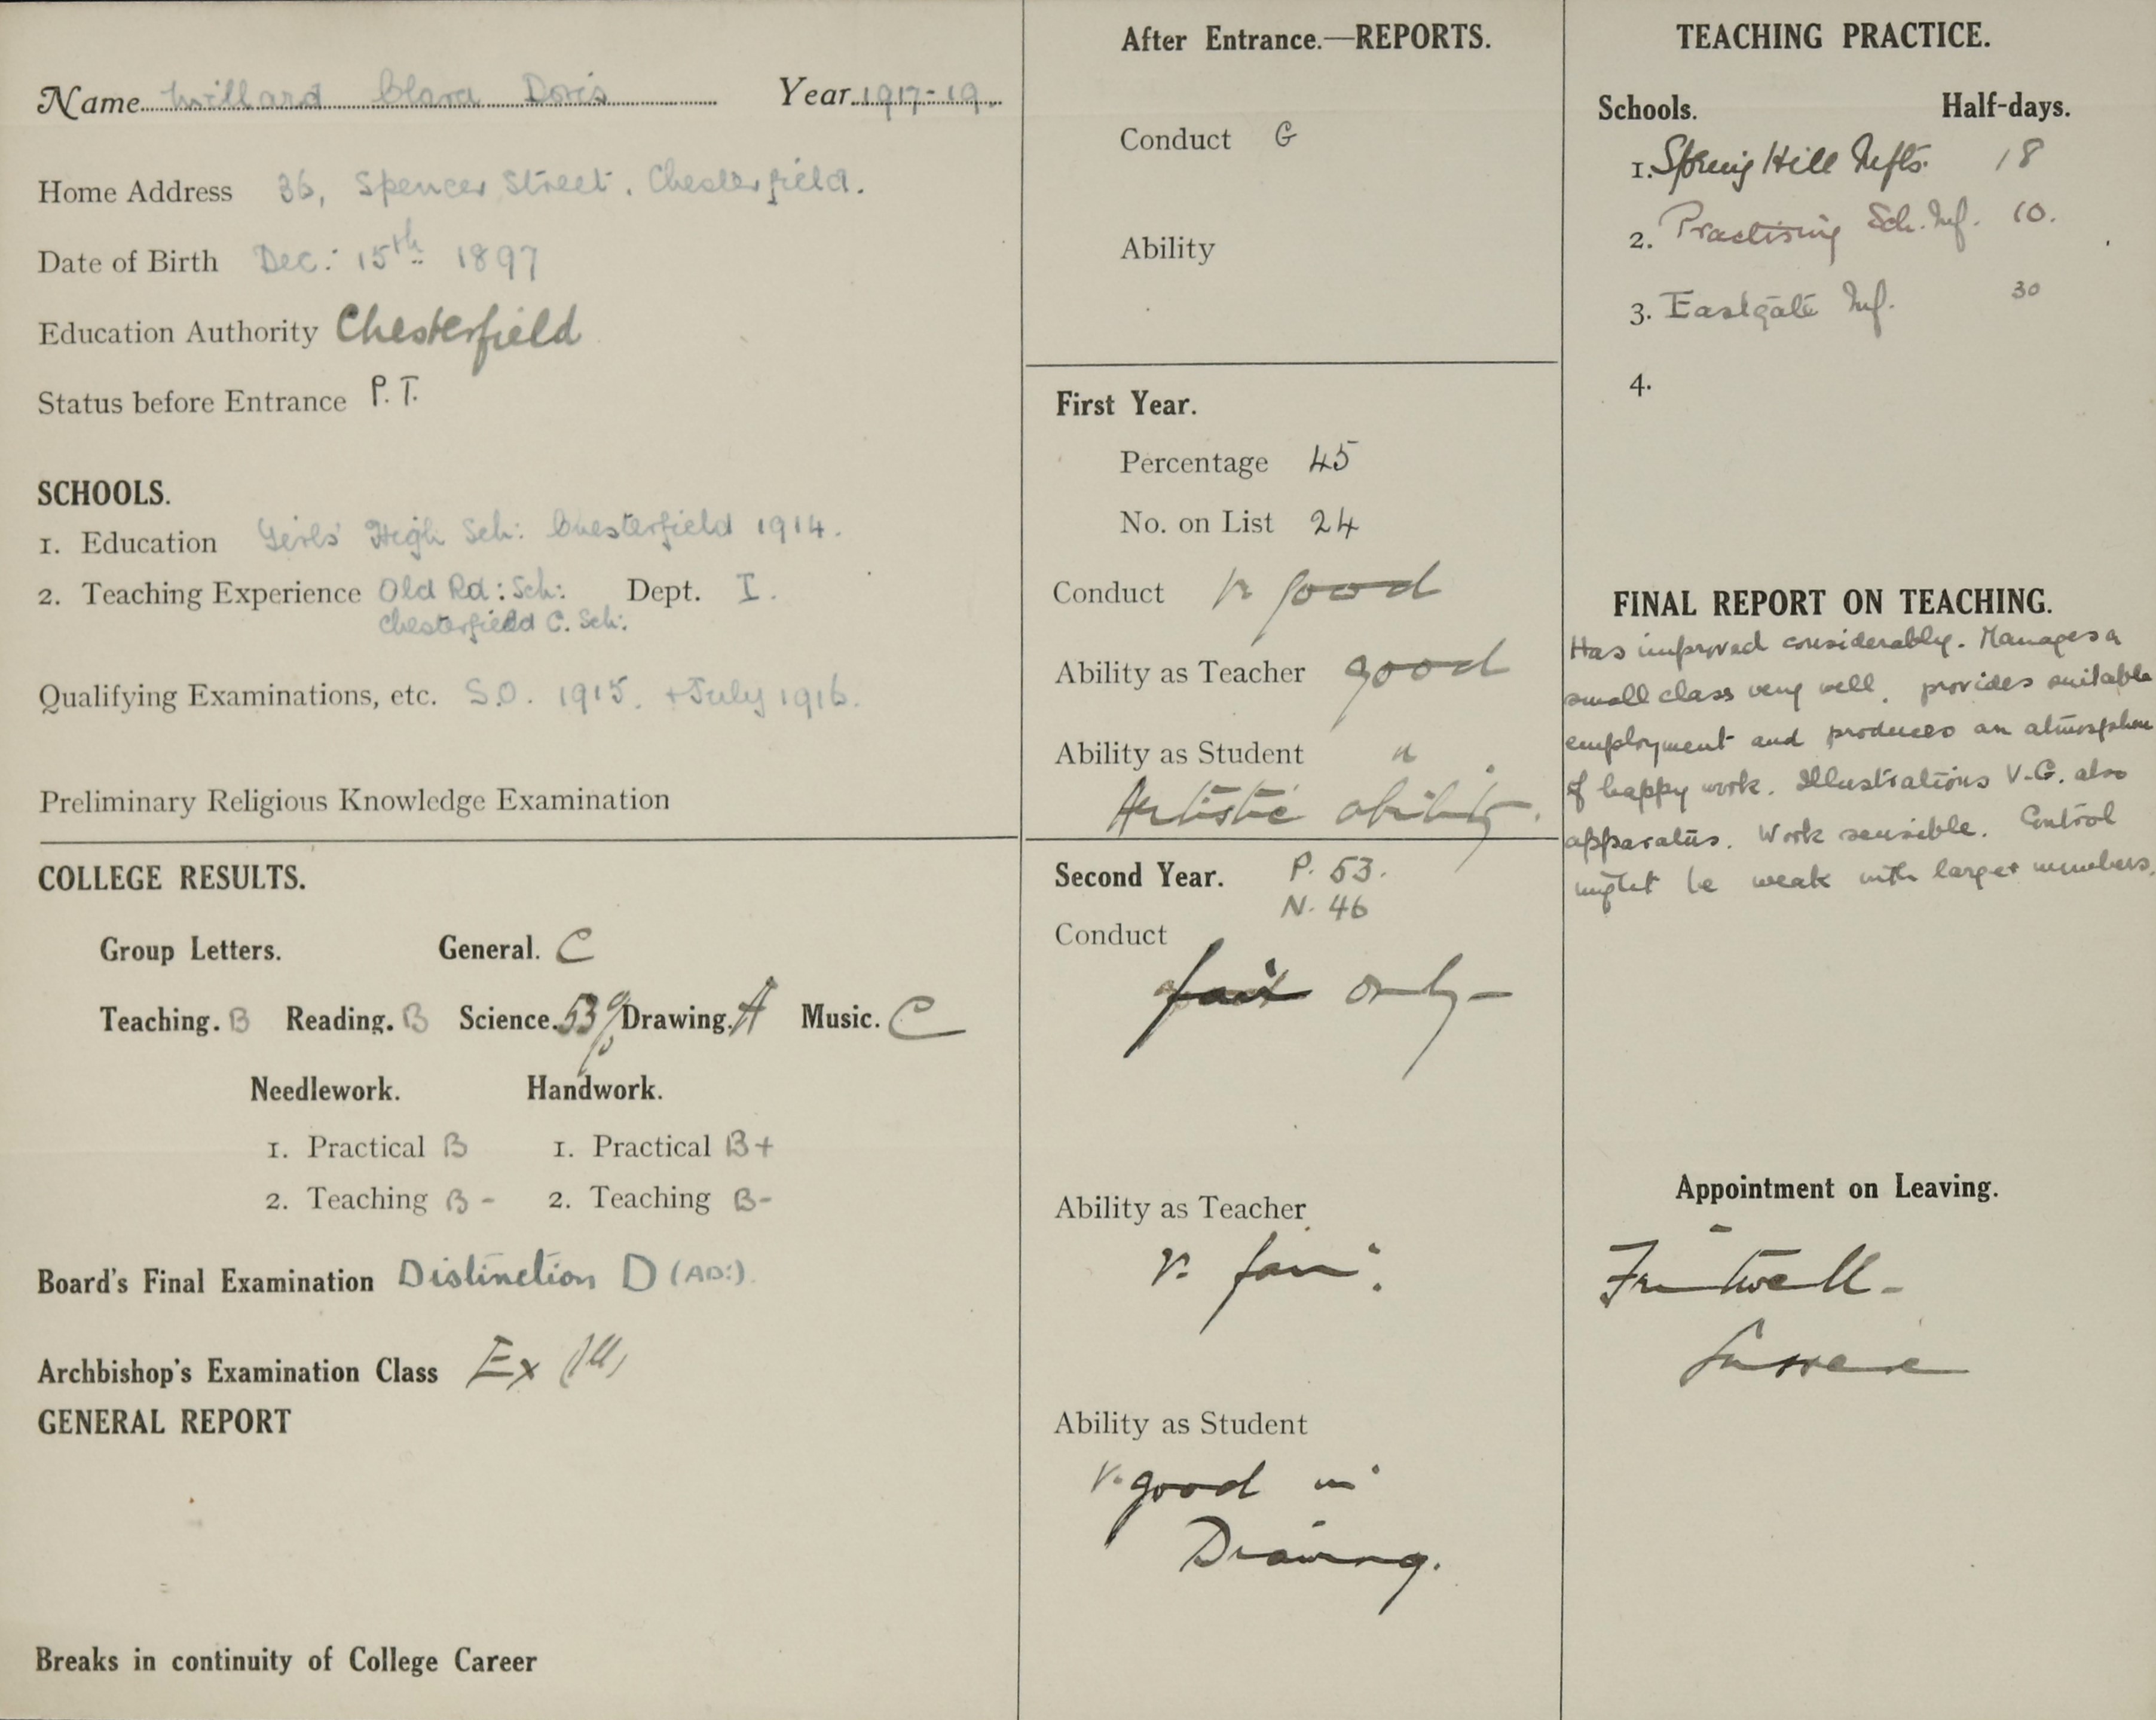 Name Willard Clara Doris Year 1917-19.
Home Address 36, Spencer Street. Chesterfield.
Date of Birth Dec: 15th 1897
Education Authority Chesterfield
Status before Entrance P.T.
SCHOOLS.
1. Education Girls' High Sch: Chesterfield 1914.
2. Teaching Experience Old Rd: Sch: Dept. I.
Chesterfield C. Sch:
Qualifying Examinations, etc. S.O. 1915. + July 1916.
Preliminary Religious Knowledge Examination
COLLEGE RESULTS.
Group Letters. General. C
Teaching. B Reading. B Science. 53% Drawing. A Music. C
Needlework. Handwork.
1. Practical B 1. Practical B+
2. Teaching B- 2. Teaching B-
Board's Final Examination Distinction D (AD:).
Archbishop's Examination Class Ex
GENERAL REPORT
Breaks in continuity of College Career
After Entrance.—REPORTS.
Conduct G
Ability
First Year.
Percentage 45
No. on List 24
Conduct v good
Ability as Teacher good
Ability as Student "
Artistic ability.
Second Year. P. 53.
N. 46
Conduct
fair only -
Ability as Teacher
v. fair.
Ability as Student
v. good in
Drawing.
TEACHING PRACTICE.
Schools. Half-days.
1. Spring Hill Infts. 18
2. Practising Sch. Inf. 10.
3. Eastgate Inf. 30
4.
FINAL REPORT ON TEACHING.
Has improved considerably. Manages a
small class very well, provides suitable
employment and produces an atmosphere
of happy work. Illustrations V.G. also
apparatus. Work sensible. Control
might be weak with larger numbers.
Appointment on Leaving.
Sussex